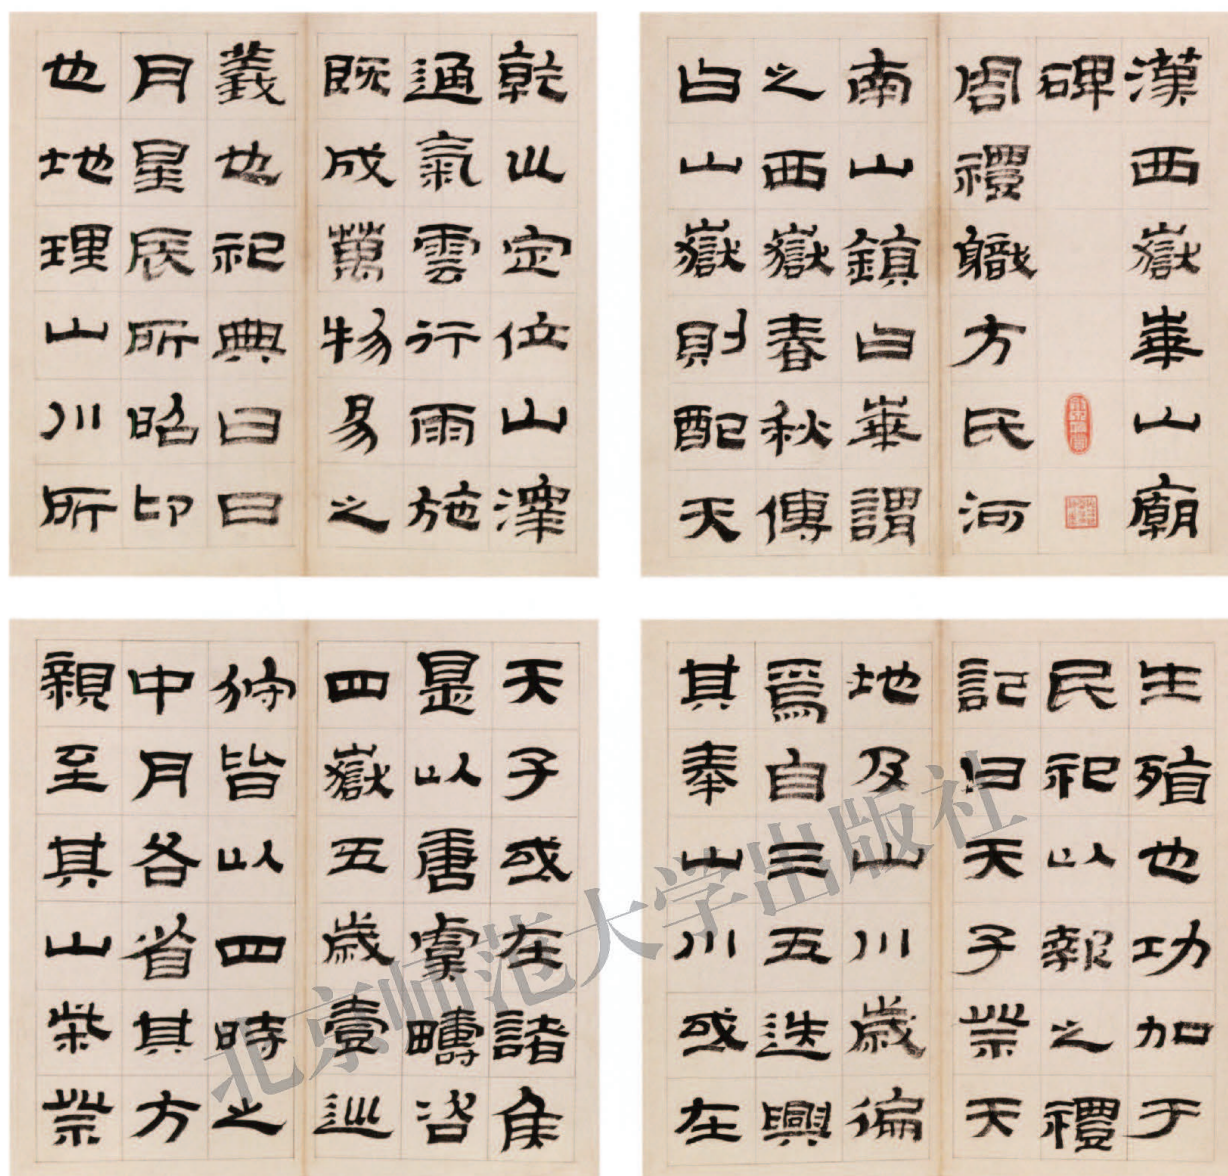 漢西嶽華山廟
碑
周禮職方氏河
南山鎮曰華謂
之西嶽春秋傳
曰山嶽則配天
乾巛定位山澤
通氣雲行雨施
既成萬物易之
義也祀典曰日
月星辰所昭卬
也地理山川所
生殖也功加于
民祀以報之禮
記曰天子祭天
地及山川歲徧
焉自三五迭興
其奉山川或在
天子或在諸侯
是以唐虞疇咨
四嶽五歲壹巡
狩皆以四時之
中月各省其方
親至其山柴祭
北京师范大学出版社